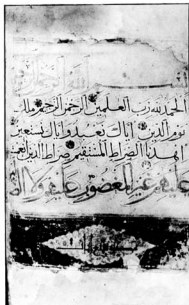 الحمد لله رب العلمين الرحمن الرحيم ملك
يوم الدين اياك نعبد واياك نستعين
اهدنا الصراط المستقيم صراط الذين انعمت
عليهم غير المغضوب عليهم ولا الضا